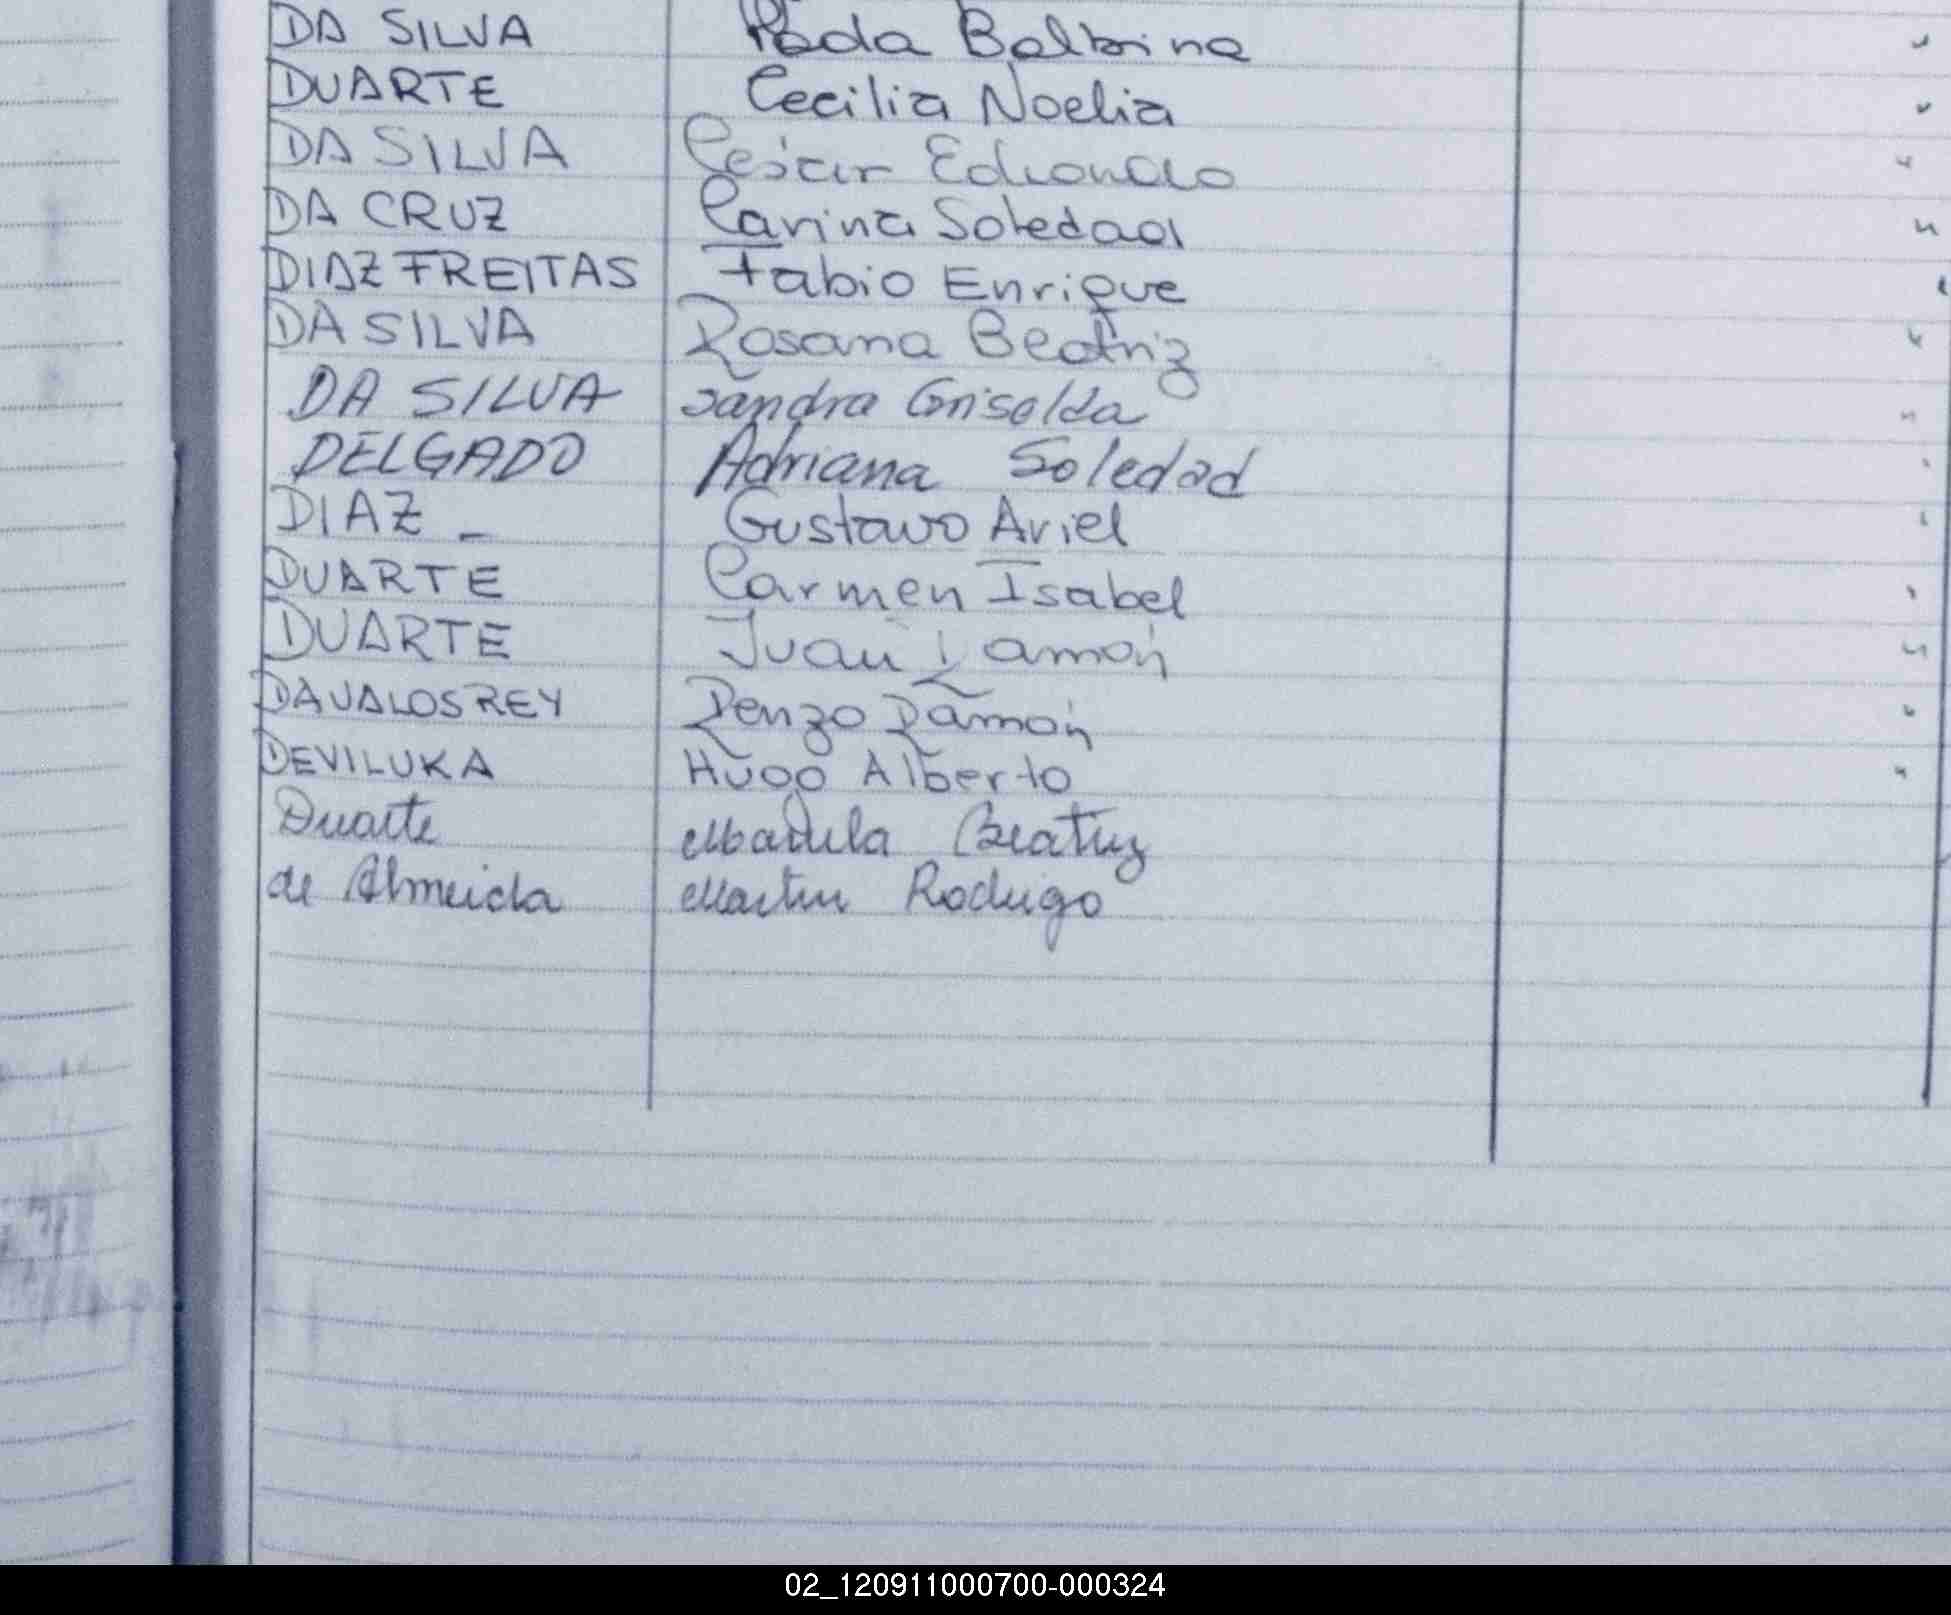 DA SILVA Balbina
DUARTE Cecilia Noelia
DA SILVA César
DA CRUZ Carina Soledad
DIAZ FREITAS Fabio Enrique
DA SILVA Rosana Beatriz
DA SILVA Sandra Griselda
DELGADO Adriana Soledad
DIAZ _ Gustavo Ariel
DUARTE Carmen Isabel
DUARTE Juan Ramón
DAVALOS REY Renzo Ramón
DEVILUKA Hugo Alberto
Duarte Mariela Beatriz
de Almeida Martin Rodrigo
02_120911000700-000324